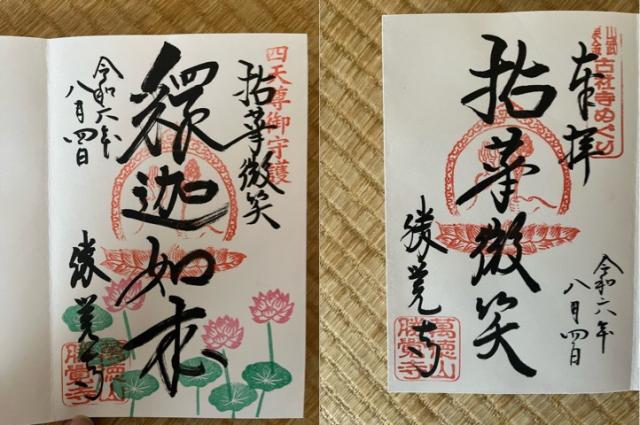 四天尊御守護
拈華微笑
釋迦如来
令和六年
八月四日
勝覚寺
萬徳山
勝覺寺
山武
古社寺めぐり
奉拝
拈華微笑
令和六年
八月四日
勝覚寺
萬徳山
勝覺寺